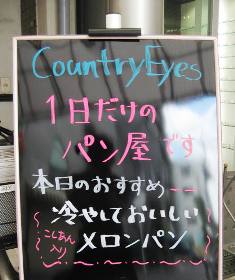 CountryEyes
1日だけの
パン屋です
本日のおすすめ
冷やしておいしい
こしあん入り
メロンパン